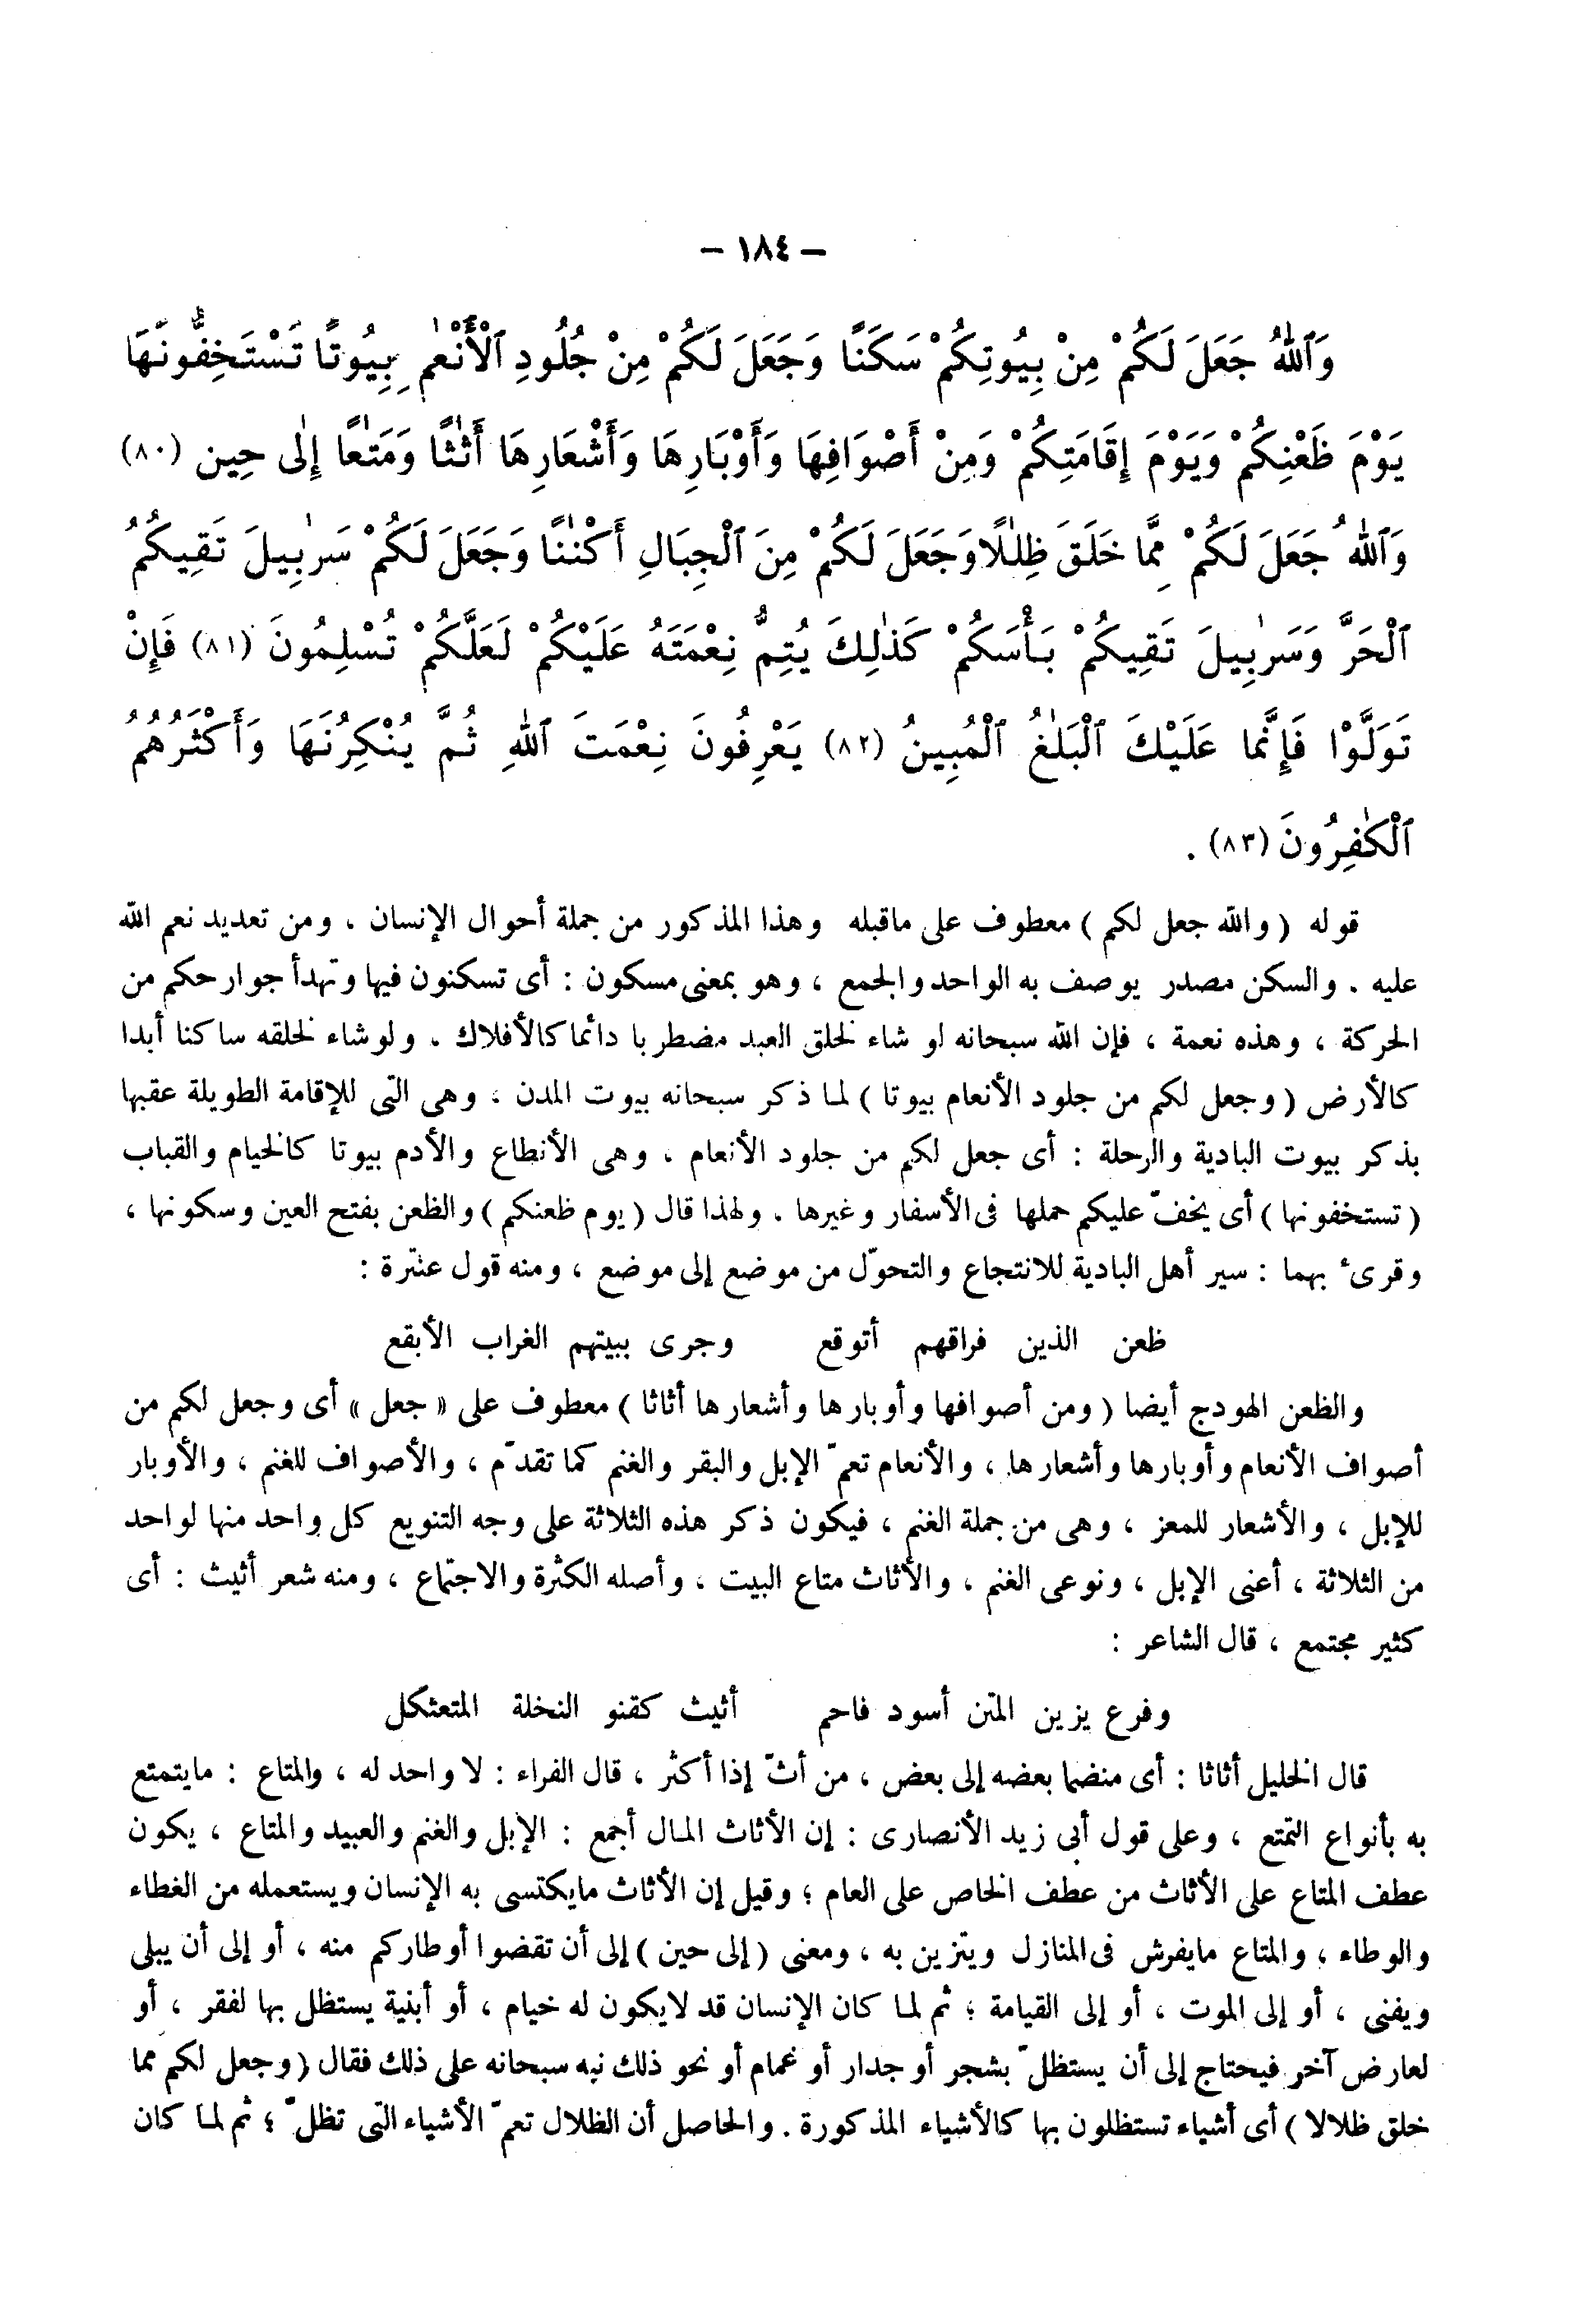 – ١٨٤ –
وَٱللّٰهُ جَعَلَ لَكُمْ مِنْ بِيُوتِكُمْ سَكَنًا وَجَعَلَ لَكُمْ مِنْ جُلُودِ ٱلْأَنْعٰمِ بِيُوتًا تَسْتَخِفُّونَهَا
يَوْمَ ظَعْنِكُمْ وَيَوْمَ إِقَامَتِكُمْ وَمِنْ أَصْوَافِهَا وَأَوْبَارِهَا وَأَشْعَارِهَا أَثٰثًا وَمَتٰعًا إِلٰى حِينٍ (٨٠)
وَٱللّٰهُ جَعَلَ لَكُمْ مِمَّا خَلَقَ ظِلٰلًا وَجَعَلَ لَكُمْ مِنَ ٱلْجِبَالِ أَكْنٰنًا وَجَعَلَ لَكُمْ سَرٰبِيلَ تَقِيكُمُ
ٱلْحَرَّ وَسَرٰبِيلَ تَقِيكُمْ بَأْسَكُمْ كَذٰلِكَ يُتِمُّ نِعْمَتَهُ عَلَيْكُمْ لَعَلَّكُمْ تُسْلِمُونَ (٨١) فَإِنْ
تَوَلَّوْا فَإِنَّمَا عَلَيْكَ ٱلْبَلٰغُ ٱلْمُبِينُ (٨٢) يَعْرِفُونَ نِعْمَتَ ٱللّٰهِ ثُمَّ يُنْكِرُنَهَا وَأَكْثَرُهُمُ
ٱلْكٰفِرُونَ (٨٣) .
قوله ( والله جعل لكم ) معطوف على ماقبله وهذا المذكور من جملة أحوال الإنسان ، ومن تعديد نعم الله
عليه . والسكن مصدر يوصف به الواحد والجمع ، وهو بمعنى مسكون : أى تسكنون فيها وتهدأ جوارحكم من
الحركة ، وهذه نعمة ، فإن الله سبحانه لو شاء لخلق العبد مضطربا دائما كالأفلاك . ولو شاء لخلقه ساكنا أبدا
كالأرض ( وجعل لكم من جلود الأنعام بيوتا ) لما ذكر سبحانه بيوت المدن ، وهى التى للإقامة الطويلة عقبها
بذكر بيوت البادية والرحلة : أى جعل لكم من جلود الأنعام ، وهى الأنطاع والأدم بيوتا كالخيام والقباب
( تستخفونها ) أى يخفّ عليكم حملها فى الأسفار وغيرها . ولهذا قال ( يوم ظعنكم ) والظعن بفتح العين وسكونها ،
وقرئ بهما : سير أهل البادية للانتجاع والتحوّل من موضع إلى موضع ، ومنه قول عنترة :
ظعن الذين فراقهم أتوقع وجرى ببيتهم الغراب الأبقع
والظعن الهودج أيضا ( ومن أصوافها وأوبارها وأشعارها أثاثا ) معطوف على « جعل » أى وجعل لكم من
أصواف الأنعام وأوبارها وأشعارها ، والأنعام تعمّ الإبل والبقر والغنم كما تقدّم ، والأصواف للغنم ، والأوبار
للإبل ، والأشعار للمعز ، وهى من جملة الغنم ، فيكون ذكر هذه الثلاثة على وجه التنويع كل واحد منها لواحد
من الثلاثة ، أعنى الإبل ، ونوعى الغنم ، والأثاث متاع البيت ، وأصله الكثرة والاجتماع ، ومنه شعر أثيث : أى
كثير مجتمع ، قال الشاعر :
وفرع يزين المتن أسود فاحم أثيث كقنو النخلة المتعثكل
قال الخليل أثاثا : أى منضما بعضه إلى بعض ، من أثّ إذا أكثر ، قال الفراء : لا واحد له ، والمتاع : مايتمتع
به بأنواع التمتع ، وعلى قول أبى زيد الأنصارى : إن الأثاث المال أجمع : الإبل والغنم والعبيد والمتاع ، يكون
عطف المتاع على الأثاث من عطف الخاص على العام ؛ وقيل إن الأثاث مايكتسى به الإنسان ويستعمله من الغطاء
والوطاء ، والمتاع مايفرش فى المنازل ويتزين به ، ومعنى ( إلى حين ) إلى أن تقضوا أوطاركم منه ، أو إلى أن يبلى
ويفنى ، أو إلى الموت ، أو إلى القيامة ؛ ثم لما كان الإنسان قد لايكون له خيام ، أو أبنية يستظل بها لفقر ، أو
لعارض آخر فيحتاج إلى أن يستظلّ بشجر أو جدار أو غمام أو نحو ذلك نبه سبحانه على ذلك فقال ( وجعل لكم مما
خلق ظلالا ) أى أشياء تستظلون بها كالأشياء المذكورة . والحاصل أن الظلال تعمّ الأشياء التى تظلّ ؛ ثم لما كان